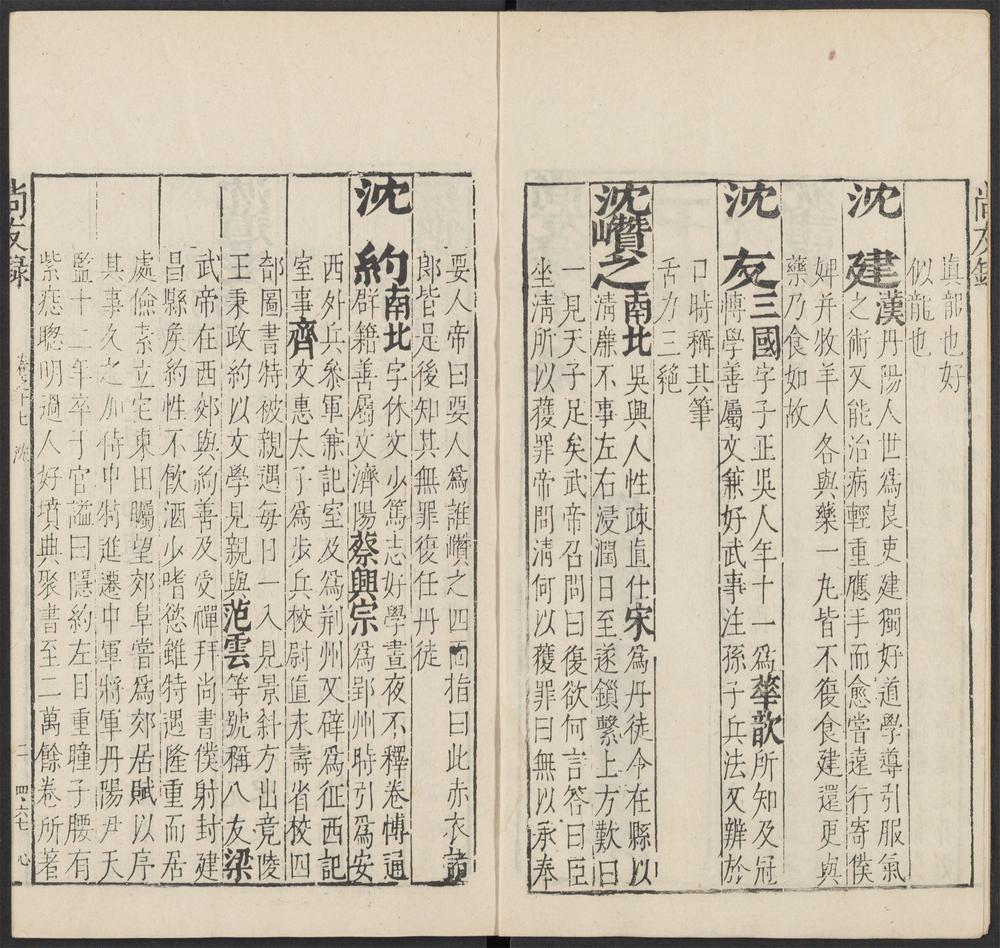 尚友錄
真龍也好
似龍也
沈建漢丹陽人世為良吏建獨好道學導引服氣
之術又能治病輕重應手而愈嘗遠行寄僕
婢并牧羊人各與藥一丸皆不復食建還更與
藥乃食如故
沈友三國字子正吳人年十一為華歆所知及冠
博學善屬文兼好武事注孫子兵法又辨於
口時稱其筆
舌力三絕
沈巑之南北吳興人性疎直仕宋為丹徒令在縣以
清廉不事左右浸潤日至遂鎖繫上方歎曰
一見天子足矣武帝召問曰復欲何言答曰臣
坐清所以獲罪帝問清何以獲罪曰無以承奉
要人帝曰要人為誰巑之四面指曰此赤衣諸
郎皆是後知其無罪復任丹徒
沈約南北字休文少篤志好學晝夜不釋卷博通
群籍善屬文濟陽蔡興宗為郢州時引為安
西外兵參軍兼記室及為荊州又辟為征西記
室事齊文惠太子為步兵校尉直永壽省校四
部圖書特被親遇每日一入見景斜方出竟陵
王秉政約以文學見親與范雲等號稱八友梁
武帝在西郊與約善及受禪拜尚書僕射封建
昌縣矦約性不飲酒少嗜慾雖特遇隆重而居
處儉素立宅東田矚望郊阜嘗為郊居賦以序
其事久之加侍中特進遷中軍將軍丹陽尹天
監十二年卒于官謚曰隱約左目重瞳子腰有
紫痣聰明過人好墳典聚書至二萬餘卷所著
尚友錄
卷十七 沈
二
四六七
心